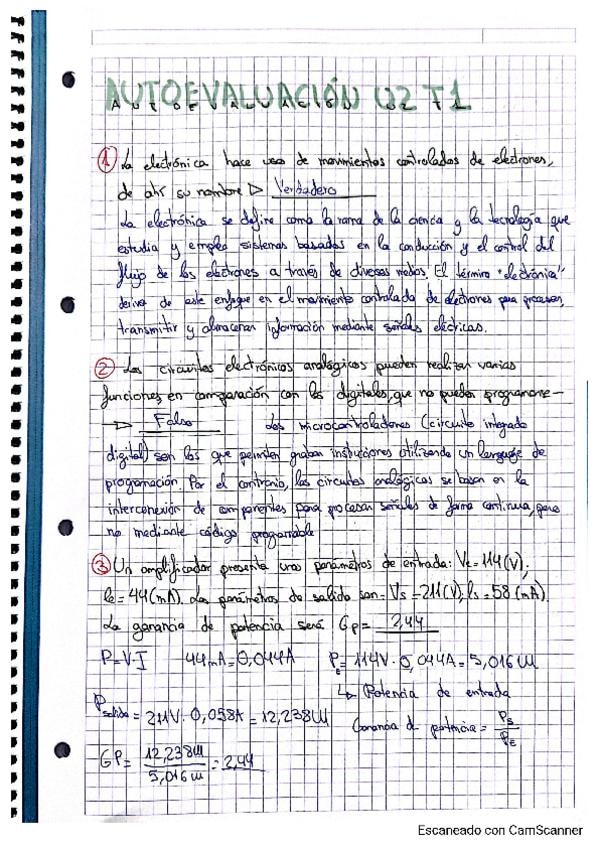 AUTOEVALUACIÓN U2 T1
① La electrónica hace uso de movimientos controlados de electrones,
de ahí su nombre ▷ Verdadero
La electrónica se define como la rama de la ciencia y la tecnología que
estudia y emplea sistemas basados en la conducción y el control del
flujo de los electrones a través de diversos medios. El término "electrónica"
deriva de este enfoque en el movimiento controlado de electrones para procesar,
transmitir y almacenar información mediante señales eléctricas.
② Los circuitos electrónicos analógicos pueden realizar varias
funciones, en comparación con los digitales, que no pueden programarse —
→ Falso Los microcontroladores (circuito integrado
digital) son los que permiten grabar instrucciones utilizando un lenguaje de
programación. Por el contrario, los circuitos analógicos se basan en la
interconexión de componentes para procesar señales de forma continua, pero
no mediante código programable
③ Un amplificador presenta unos parámetros de entrada: Ve=114(V);
Ie=44(mA). Los parámetros de salida son: Vs=211(V); Is=58(mA).
La ganancia de potencia será Gp= 2,44
P=V·I 44mA=0,044A Pe=114V·0,044A=5,016W
↳ Potencia de entrada
Psalida=211V·0,058A=12,238W Ganancia de potencia = Ps/PE
GP= 12,238W/5,016W = 2,44
Escaneado con CamScanner